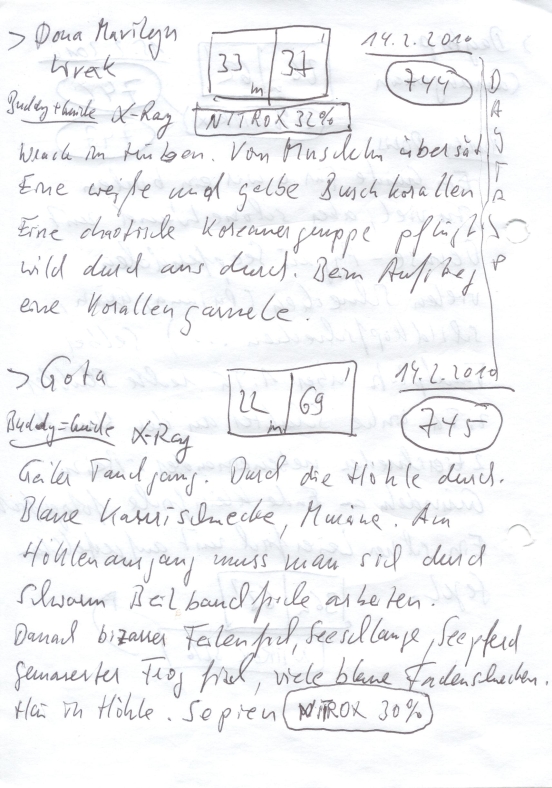 > Dona Marilyn
Wrak
33 m 37'
14.2.2010
744
Buddy+Guide X-Ray NITROX 32%
DAYTRIP
Wrack im trüben. Von Muscheln übersät
Eine weiße und gelbe Buschkorallen
Eine chaotische Koreanergruppe pflügt
wild durch uns durch. Beim Aufstieg
eine Korallengarnele.
> Gota
22 m 69'
14.2.2010
745
Buddy=Guide X-Ray
Geiler Tauchgang. Durch die Höhle durch.
Blaue Kaurischnecke, Muräne. Am
Höhlenausgang muss man sich durch
Schwarm Beilbauchfische arbeiten.
Danach bizarrer Feilenfisch, Seeschlange, Seepferd
gemaserter Frogfisch, viele blaue Fadenschnecken.
Hai in Höhle. Sepien NITROX 30%